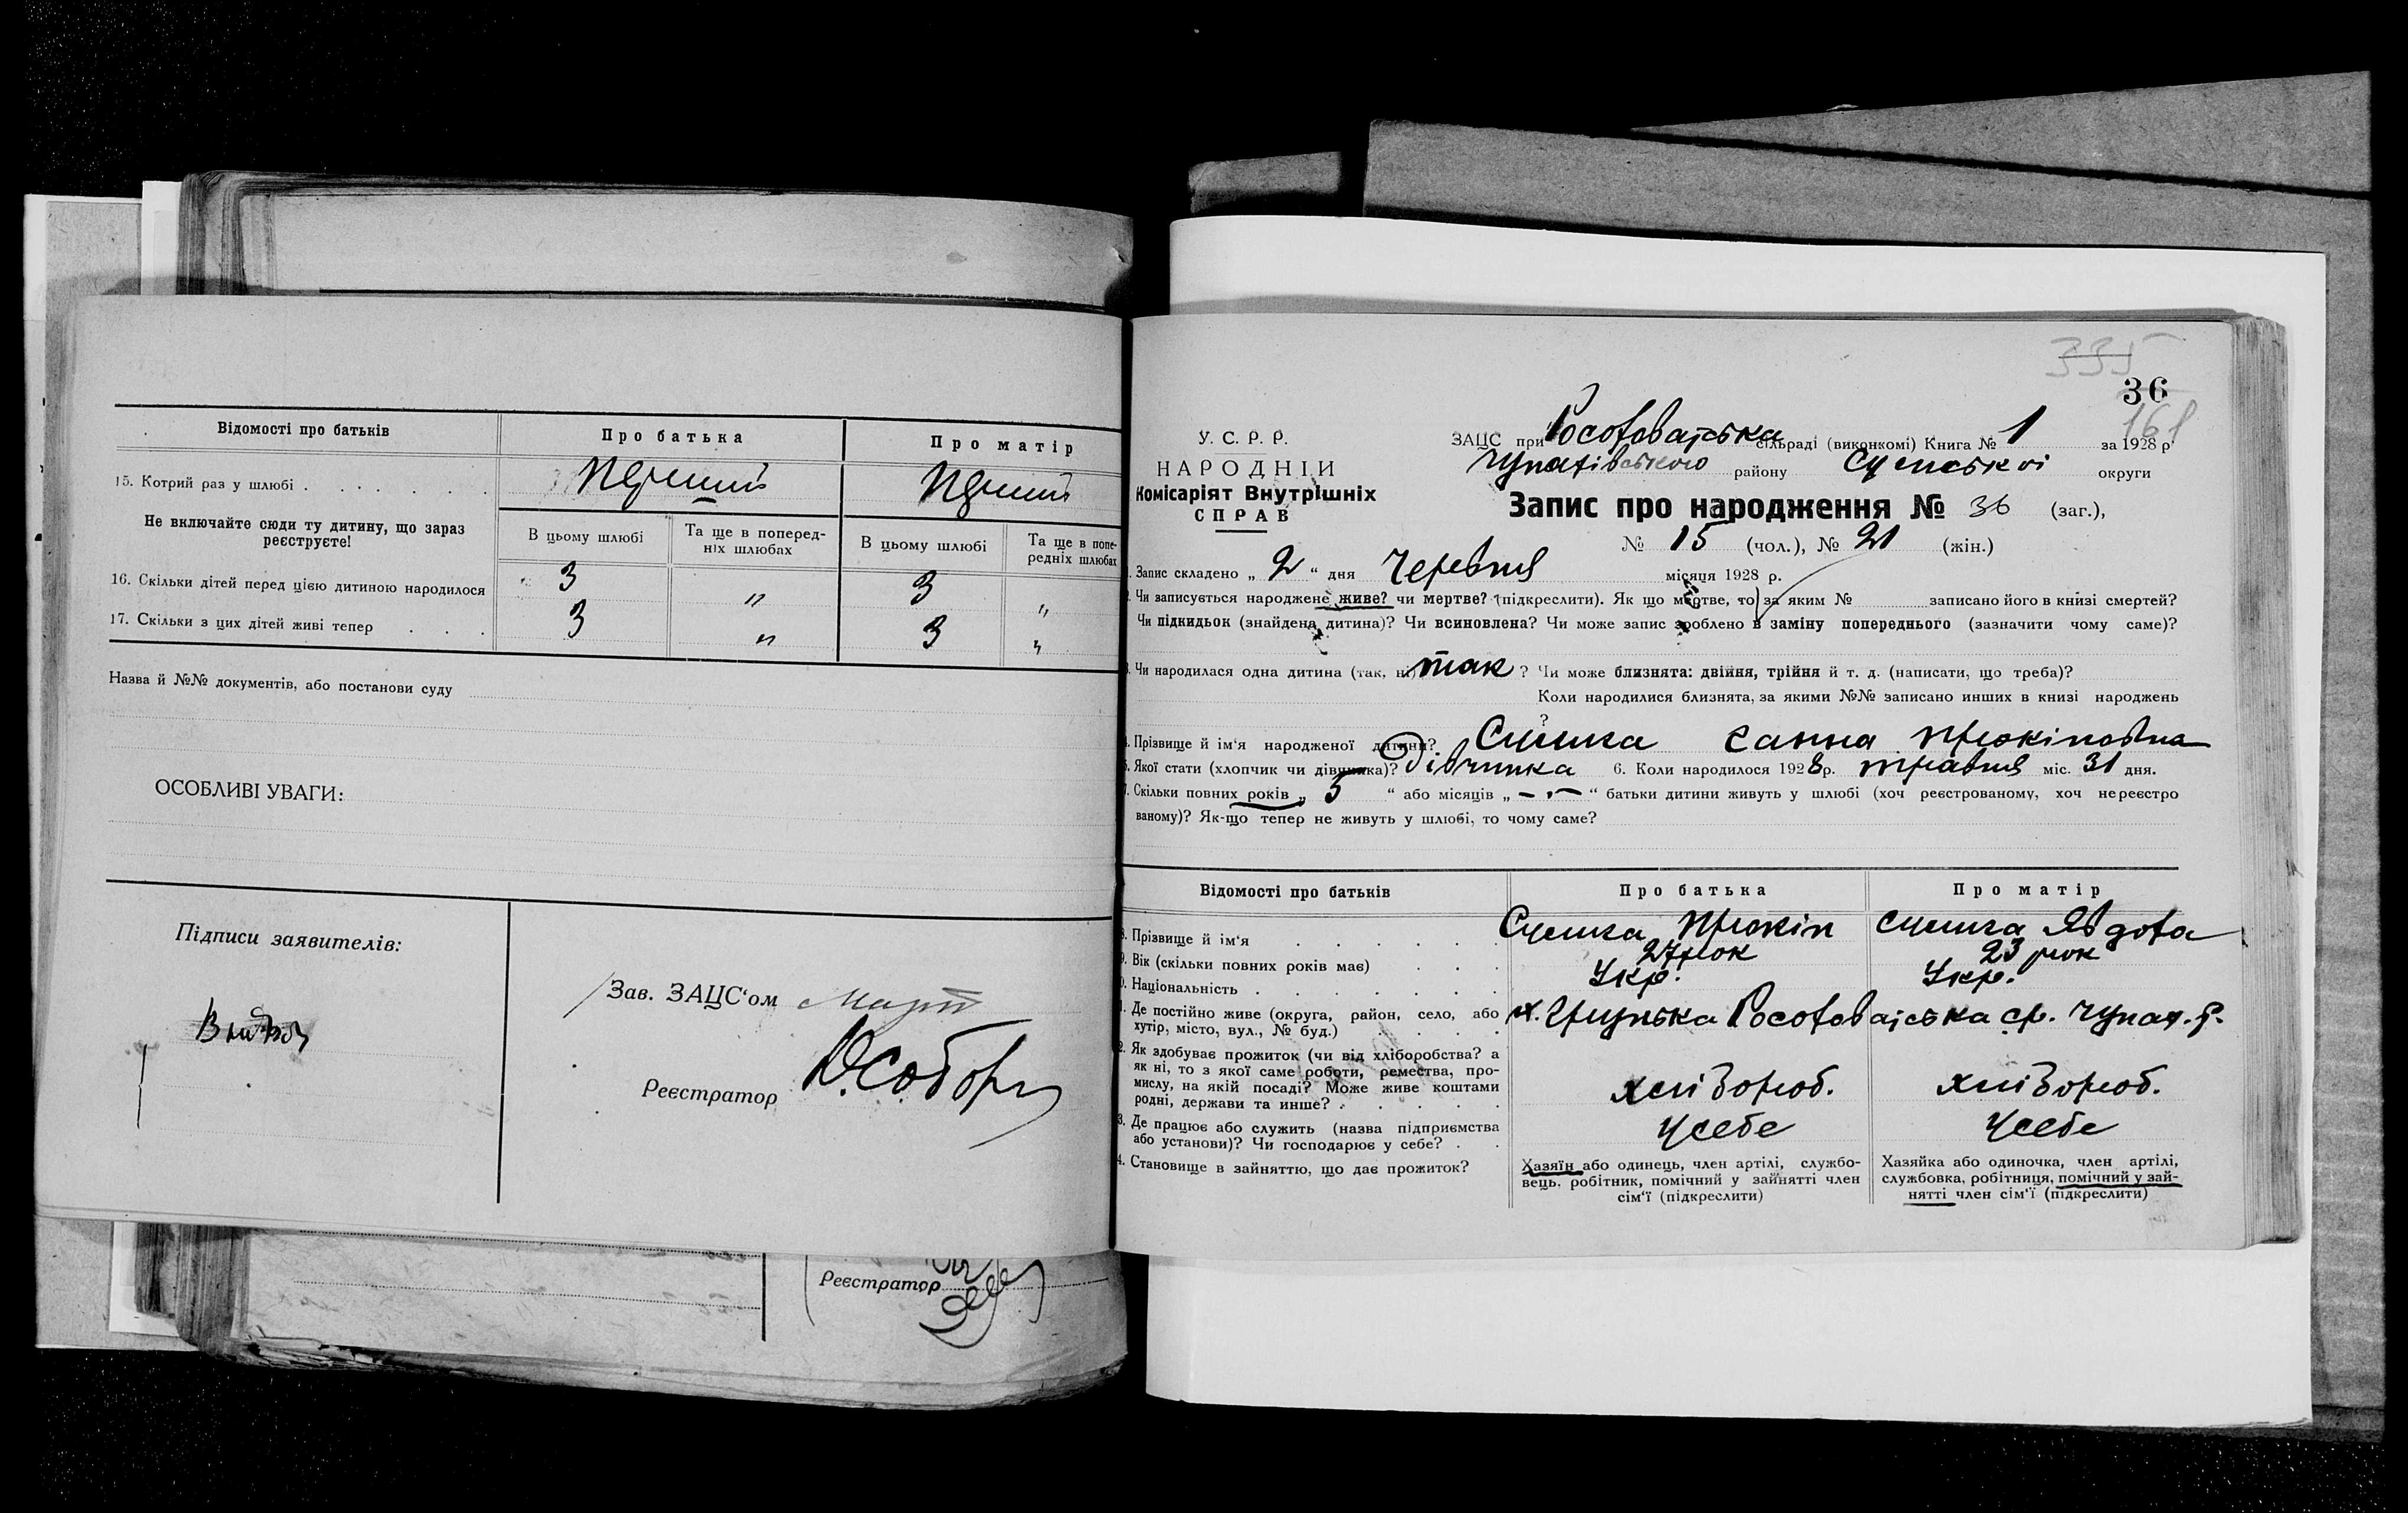 Відомості про батьків
Про батька
Про матір
15. Котрий раз у шлюбі
Перший
Перший
Не включайте сюди ту дитину, що зараз
реєструєте!
В цьому шлюбі
Та ще в поперед-
ніх шлюбах
В цьому шлюбі
Та ще в попе-
редніх шлюбах
16. Скільки дітей перед цією дитиною народилося
3
"
3
"
17. Скільки з цих дітей живі тепер
3
"
3
"
Назва й №№ документів, або постанови суду
ОСОБЛИВІ УВАГИ:
Підписи заявителів:
Зав. ЗАЦС'ом
Реєстратор
Реєстратор
335
36
161
У. С. Р. Р.
НАРОДНІЙ
Комісаріят Внутрішніх
СПРАВ
ЗАЦС при сільраді (виконкомі) Книга № 1 за 1928 р
Чупахівського району Сумської округи
Запис про народження № 36 (заг.),
№ 15 (чол.), № 21 (жін.)
Запис складено „ 2 “ дня Червня місяця 1928 р.
Чи записується народжене живе? чи мертве? (підкреслити). Як що мертве, то за яким № записано його в книзі смертей?
Чи підкидьок (знайдена дитина)? Чи всиновлена? Чи може запис зроблено в заміну попереднього (зазначити чому саме)?
Чи народилася одна дитина (так, ні) так ? Чи може близнята: двійня, трійня й т. д. (написати, що треба)?
Коли народилися близнята, за якими №№ записано инших в книзі народжень
?
Прізвище й ім'я народженої дитини? Ганна Прокіповна
Якої стати (хлопчик чи дівчинка)? Дівчинка 6. Коли народилося 1928 р. травня міс. 31 дня.
Скільки повних років „ 5 “ або місяців „ — “ батьки дитини живуть у шлюбі (хоч реєстрованому, хоч нереєстро
ваному)? Як-що тепер не живуть у шлюбі, то чому саме?
Відомості про батьків
Про батька
Про матір
Прізвище й ім'я
Прокіп
Явдота
Вік (скільки повних років має)
27 рок
23 рок
Національність
Укр.
Укр.
Де постійно живе (округа, район, село, або
хутір, місто, вул., № буд.)
х. ср. Чупах. р.
Як здобуває прожиток (чи від хліборобства? а
як ні, то з якої саме роботи, ремества, про-
мислу, на якій посаді? Може живе коштами
родні, держави та инше?
хлібороб.
хлібороб.
Де працює або служить (назва підприємства
або установи)? Чи господарює у себе?
У себе
У себе
Становище в зайняттю, що дає прожиток?
Хазяїн або одинець, член артілі, службо-
вець, робітник, помічний у зайнятті член
сім'ї (підкреслити)
Хазяйка або одиночка, член артілі,
службовка, робітниця, помічний у зай-
нятті член сім'ї (підкреслити)